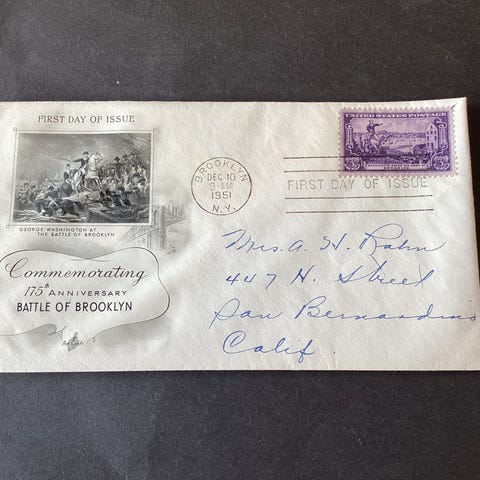 FIRST DAY OF ISSUE
GEORGE WASHINGTON AT
THE BATTLE OF BROOKLYN
Commemorating
175th ANNIVERSARY
BATTLE OF BROOKLYN
BROOKLYN
DEC 10
9-AM
1951
N.Y.
FIRST DAY OF ISSUE
UNITED STATES POSTAGE
3¢
Mrs. A. H. Rahn
447 H. Street
San Bernardino
Calif